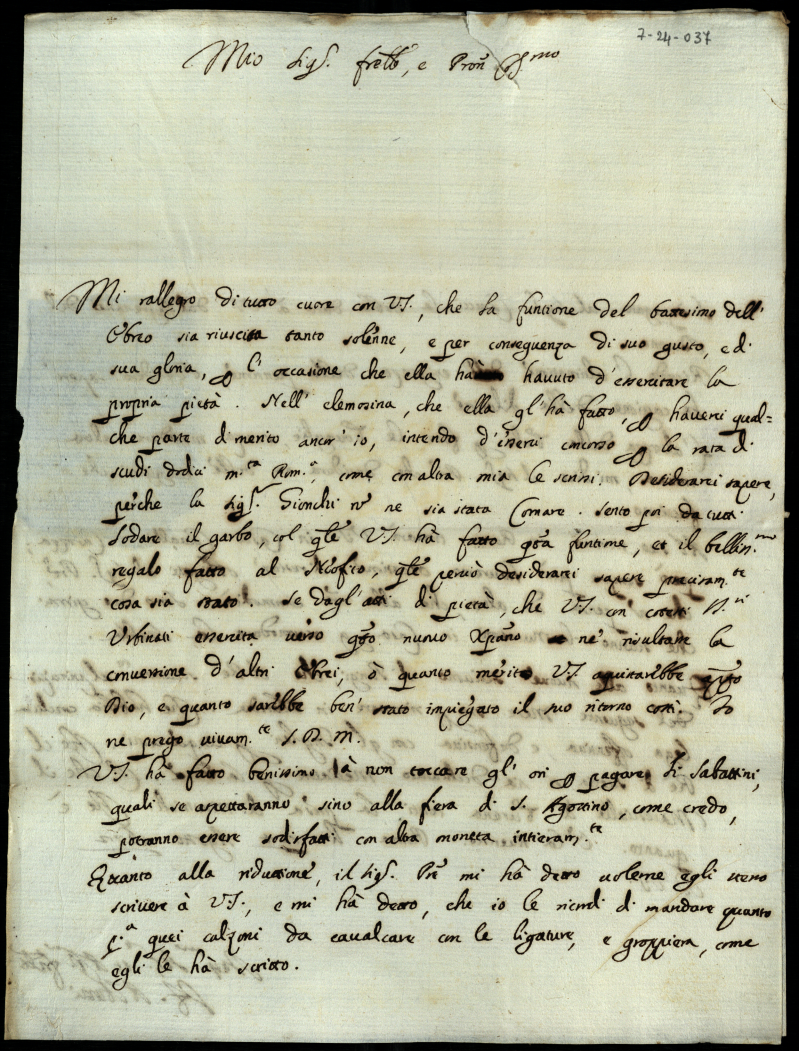 7-24-037
Mio Sig.r frello, e Pron
Mi rallegro di tutto cuore con V.S., che la funtione del battesimo dell'
Ebreo sia riuscita tanto solenne, e per conseguenza di suo gusto, e di
sua gloria, p l'occasione che ella hà havuto d'essercitare la
propria pietà. Nell'elemosina, che ella gl'hà fatto, p haverci qual=
che parte di merito anch'io, intendo d'esserci concorso p la rata di
scudi dodici m.ta Rom.a, come con altra mia le scrissi. Desiderarei sapere,
perche la Sig.ra Gionchi nò ne sia stata Comare. Sento poi da tutti
lodare il garbo, col qle V.S. hà fatto qta funtione, et il belliss.mo
regalo fatto al Neofito, qle perciò desiderarei sapere precisam.te
cosa sia stato. Se dagl'atti di pietà, che V.S. con cotesti SS.ri
Urbinati essercita verso qto nuovo Xpiano ne risultasse la
conversione d'altri Ebrei, ò quanto merito V.S. aquistarebbe appto
Dio, e quanto sarebbe ben' stato impiegato il suo ritorno costì. Io
ne prego vivam.te S. D. M.
V.S. hà fatto benissimo à non toccare gl'ori p pagare li Sabattini,
quali se aspettaranno sino alla fiera di S. Agostino, come credo,
potranno essere sodisfatti con altra moneta intieram.te
Quanto alla riduttione, il Sig.r Pre mi hà detto volerne egli stesso
scrivere à V.S., e mi hà detto, che io le ricordi di mandare quanto
p.a quei calzoni da cavalcare con le ligature, e groppiera, come
egli le hà scritto.